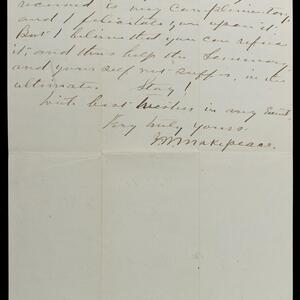 received is very complimentary,
and I felicitate you upon it.
But I believe that you can refuse
it, and thus help the Seminary
and yourself not suffer, in the
ultimate. Stay!
With best wishes in any event
Very truly yours.
Makepeace.